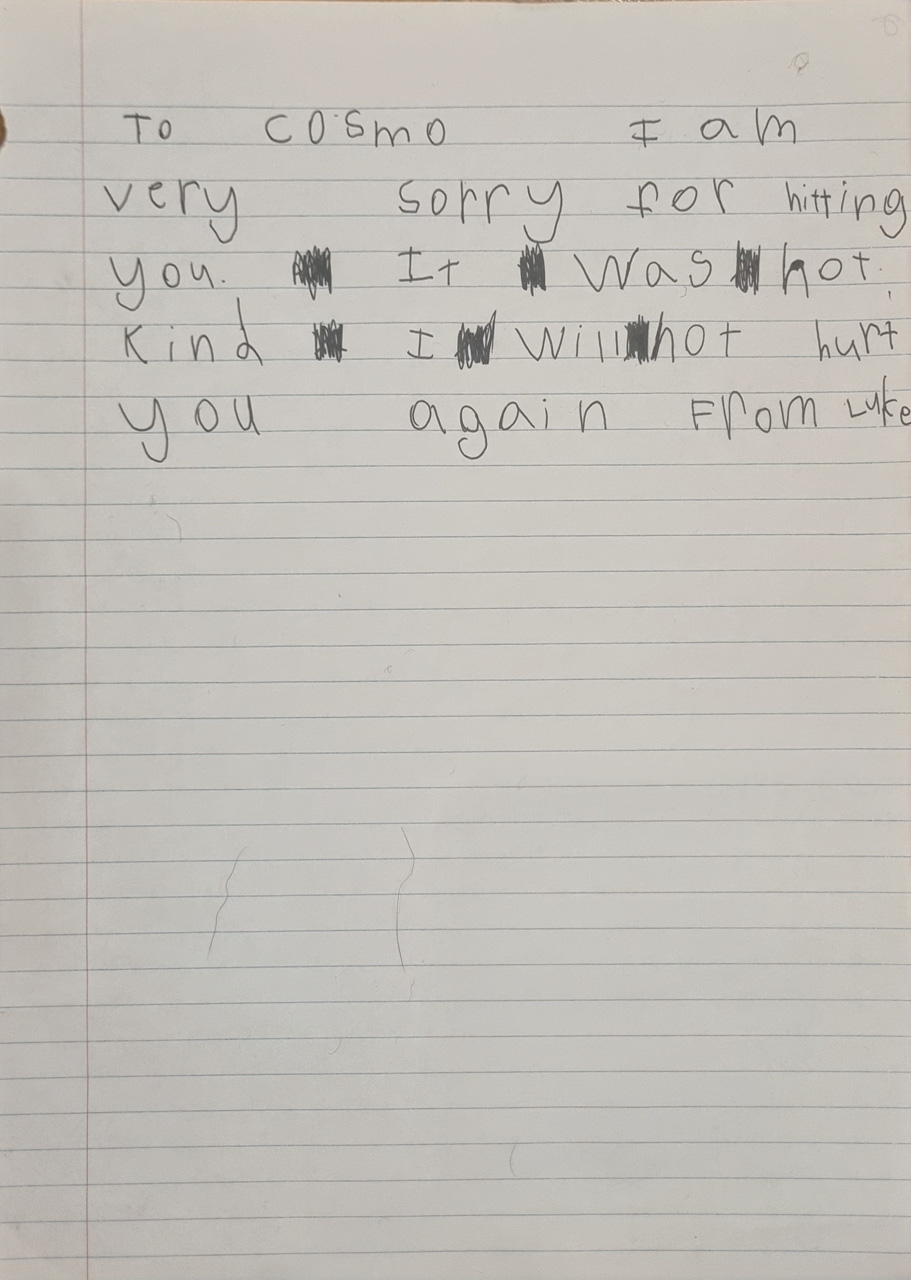 To Cosmo I am
very sorry for hitting
you. It was not
Kind I will not hurt
you again From Luke